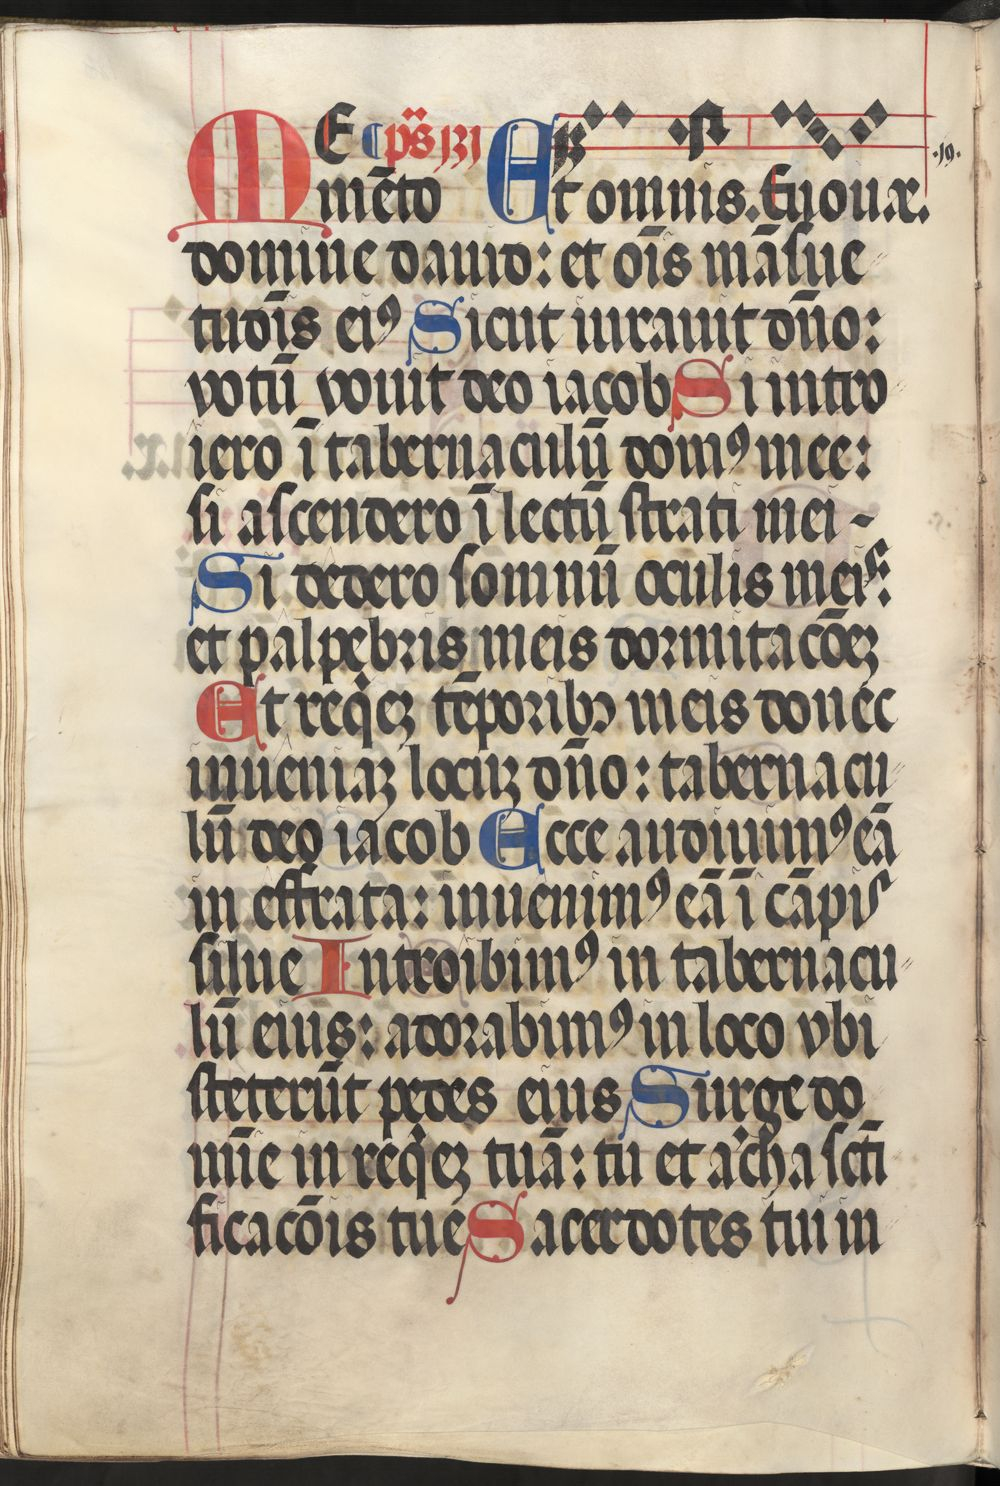 ME ps 131 .19.
mēto Et omnis. Euouae.
domine dauid: et oīs māsue
tudīs eiꝰ Sicut iurauit dn̄o:
votū vouit deo iacob Si intro
iero ī tabernaculū domꝰ mee:
si ascendero ī lectū strati mei
Si dedero somnū oculis meis:
et palpebris meis dormitacōeꝫ
Et reqͥeꝫ tēporibꝫ meis donec
inueniaꝫ locuꝫ dn̄o: tabernacu
lū deo iacob Ecce audiuimꝰ eā
in effrata: inuenimꝰ eā ī cāpis
silue Introibimꝰ in tabernacu
lū eius: adorabimꝰ in loco vbi
steterūt pedes eius Surge do
mīe in reqͥeꝫ tuā: tu et archa scti
ficacōis tue Sacerdotes tui in